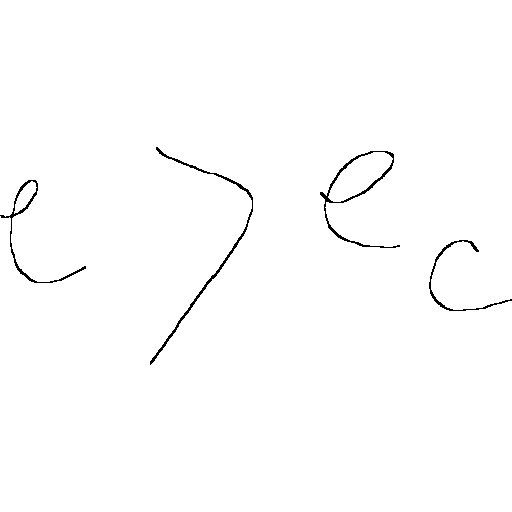 e > e_c